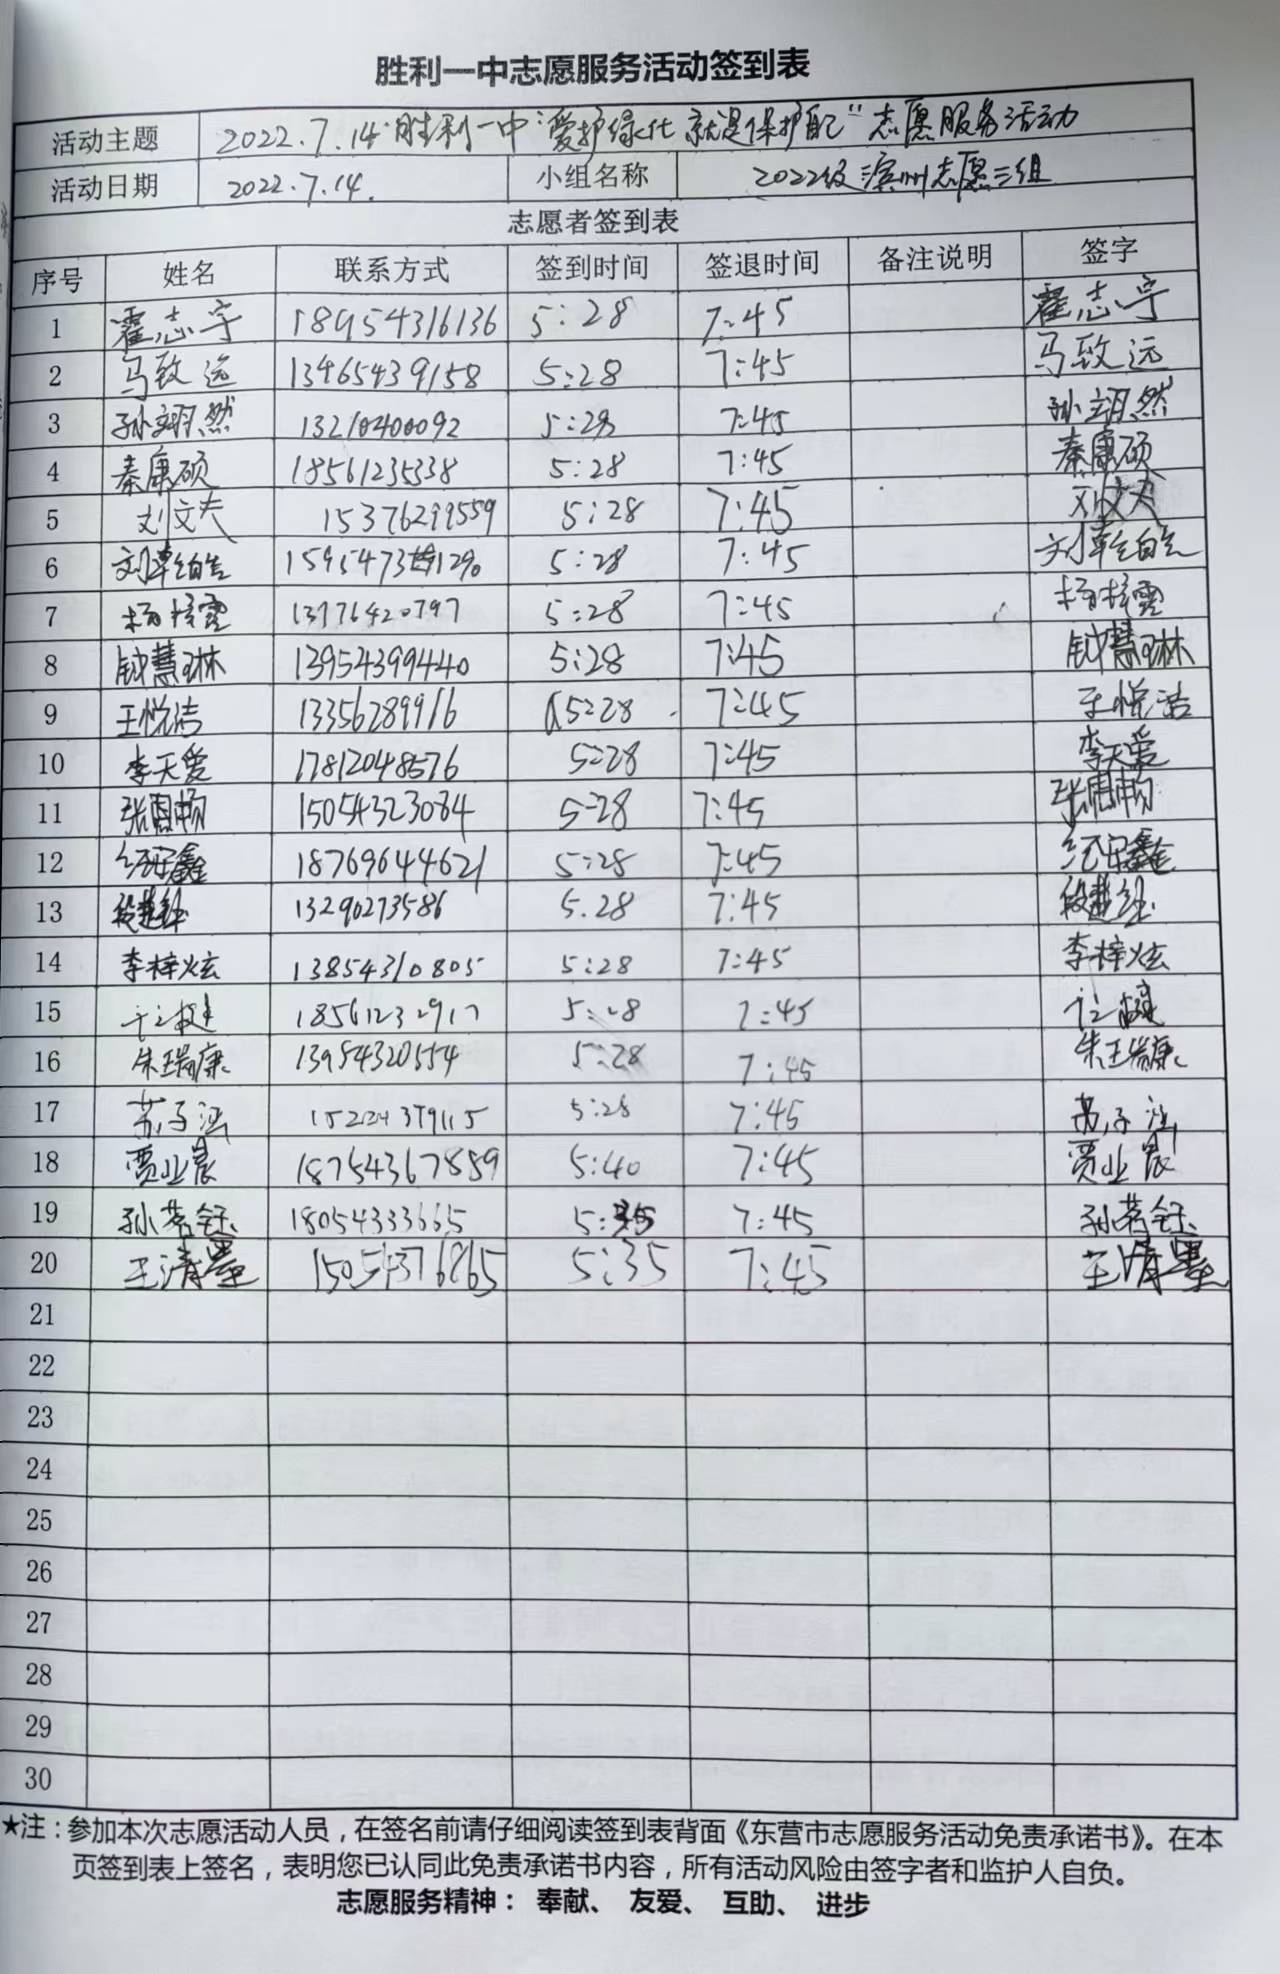 胜利一中志愿服务活动签到表
活动主题 2022.7.14"胜利一中"爱护绿化就是保护"志愿服务活动
活动日期 2022.7.14. 小组名称 2022级滨州志愿三组
志愿者签到表
序号 姓名 联系方式 签到时间 签退时间 备注说明 签字
1 霍志宇 18954316136 5:28 7:45 霍志宇
2 马致远 13465439158 5:28 7:45 马致远
3 孙翊然 13210400092 5:28 7:45 孙翊然
4 秦康硕 18561235338 5:28 7:45 秦康硕
5 刘文夫 15376299559 5:28 7:45 刘文夫
6 刘 5:28 7:45 刘
7 杨 5:28 7:45 杨
8 钟慧琳 13954399440 5:28 7:45 钟慧琳
9 王悦洁 13356289916 5:28 7:45 王悦洁
10 李天爱 17812048576 5:28 7:45 李天爱
11 张恩畅 15054323084 5:28 7:45 张恩畅
12 鑫 18769644621 5:28 7:45 鑫
13 段楚钰 13290273586 5.28 7:45 段楚钰
14 李梓炫 13854310805 5:28 7:45 李梓炫
15 18561232917 5:28 7:45
16 朱瑞康 13954320554 5:28 7:45 朱瑞康
17 苏子涵 5:28 7:45 苏子涵
18 贾业晨 18754367859 5:40 7:45 贾业晨
19 孙茗钰 18054333665 5:35 7:45 孙茗钰
20 王清墨 15054376865 5:35 7:45 王清墨
21
22
23
24
25
26
27
28
29
30
★注：参加本次志愿活动人员，在签名前请仔细阅读签到表背面《东营市志愿服务活动免责承诺书》。在本
页签到表上签名，表明您已认同此免责承诺书内容，所有活动风险由签字者和监护人自负。
志愿服务精神： 奉献、 友爱、 互助、 进步